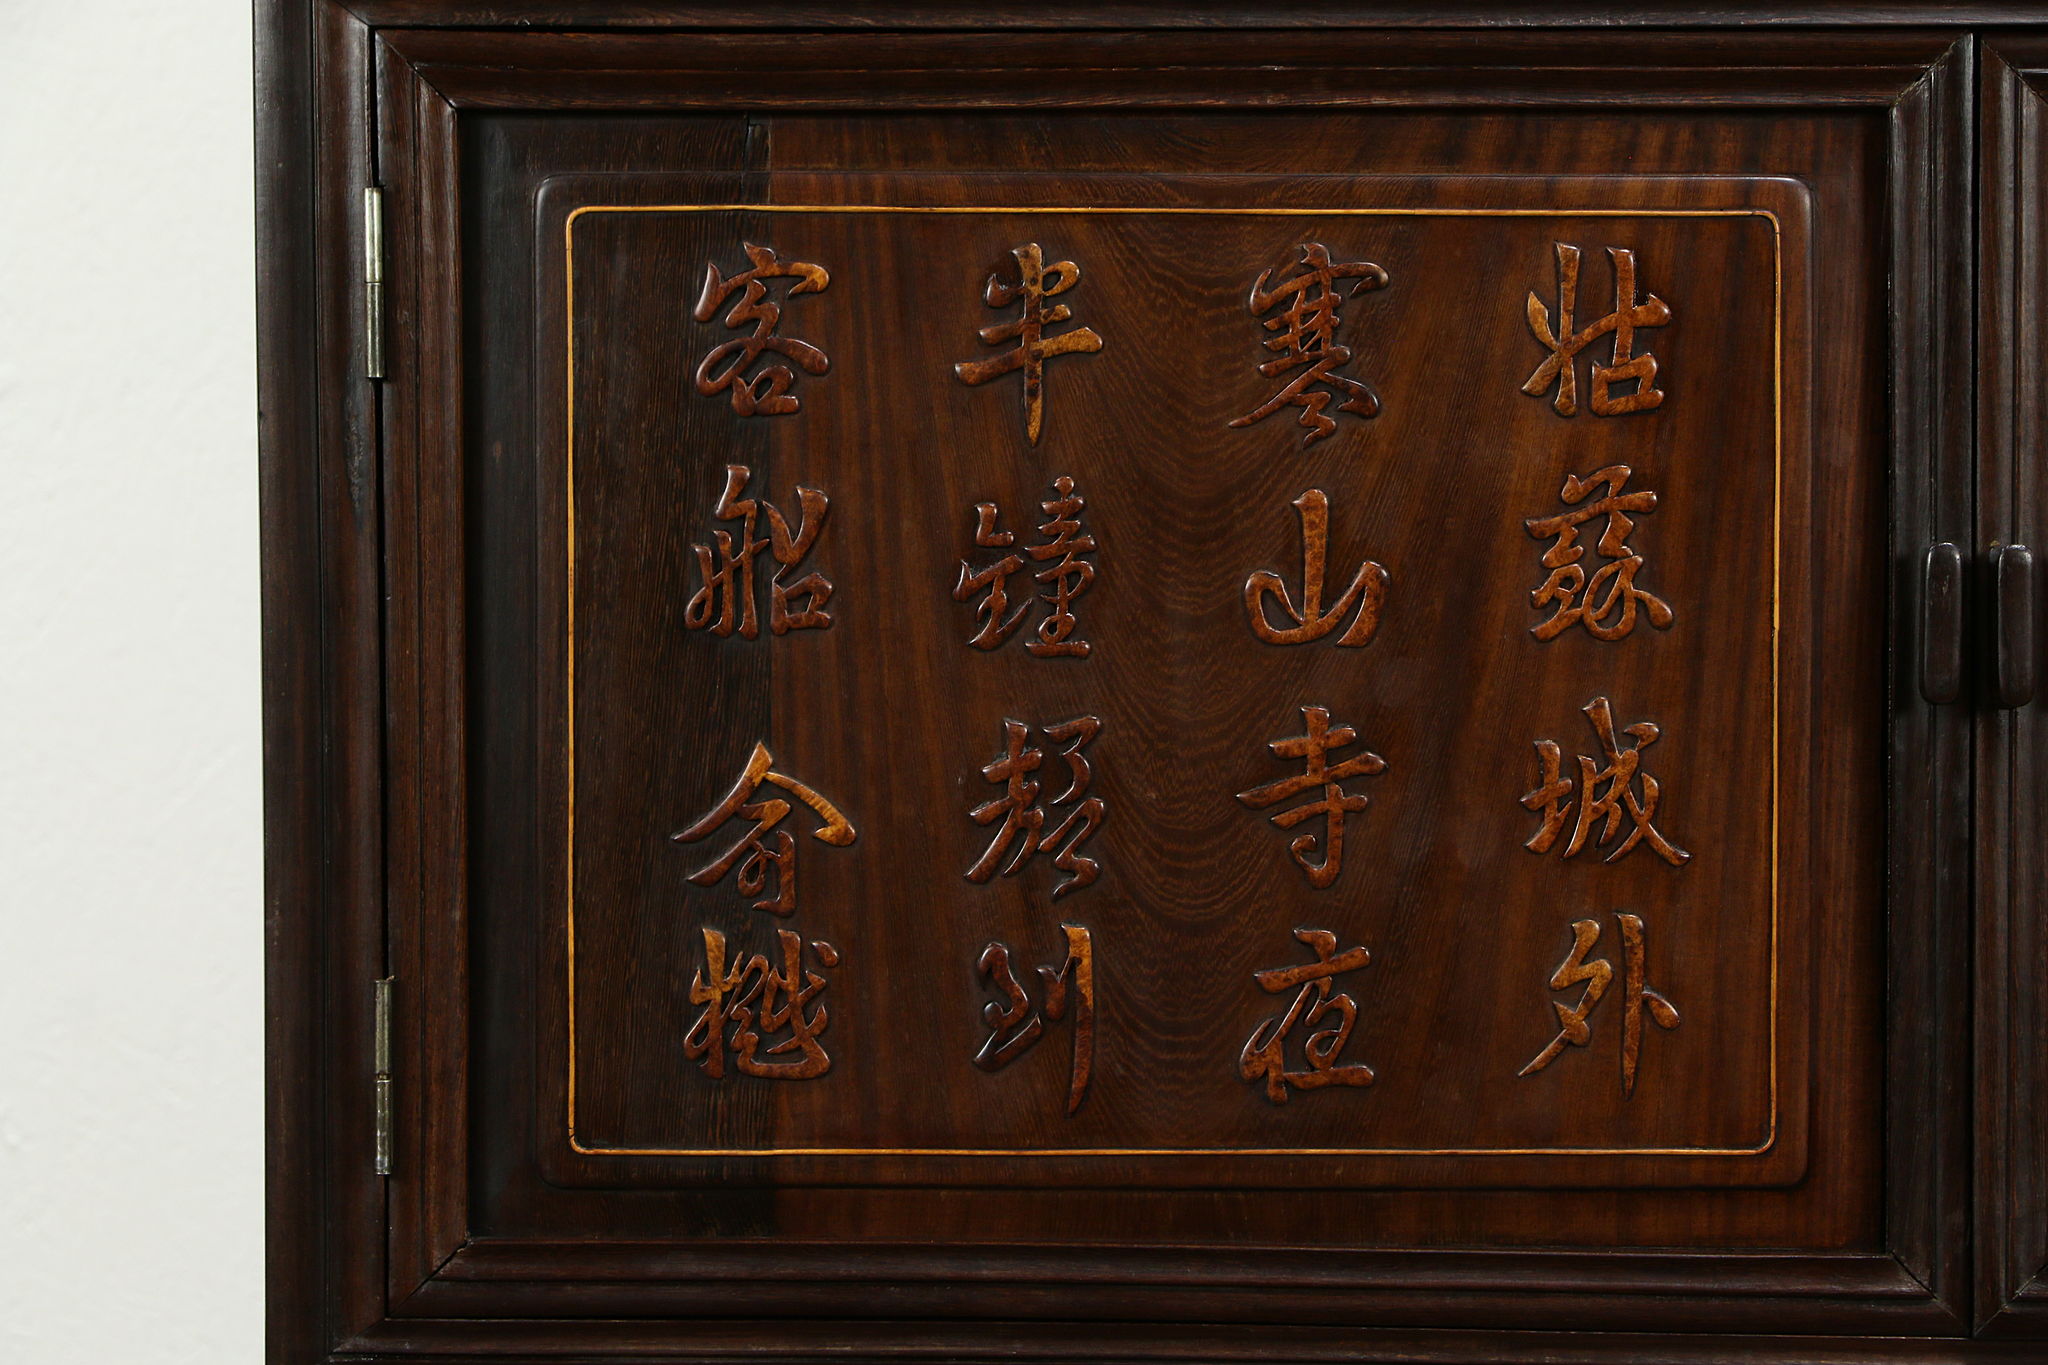 姑蘇城外
寒山寺夜
半鐘聲到
客船俞樾